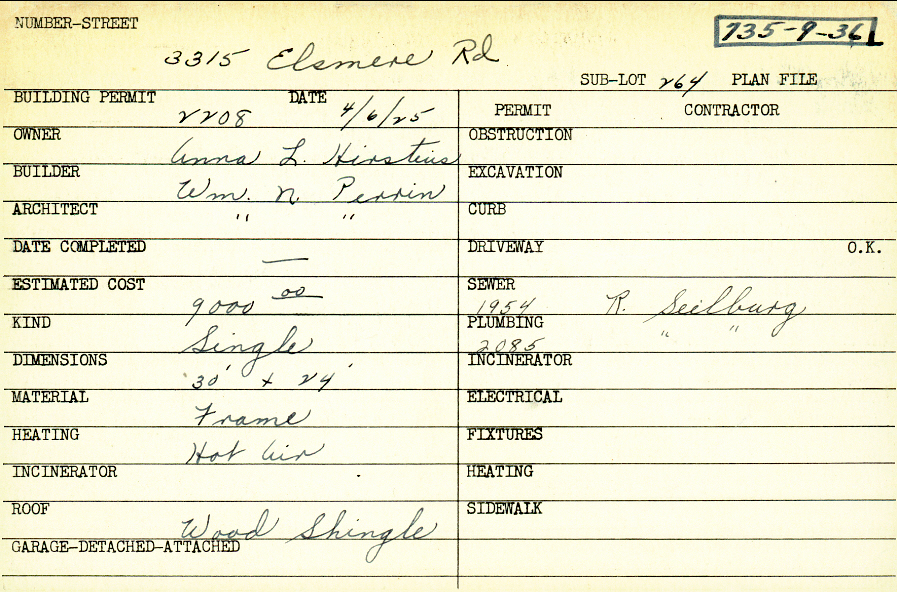 NUMBER-STREET
735-9-36L
3315 Elsmere Rd.
SUB-LOT 264 PLAN FILE
BUILDING PERMIT 2208 DATE 4/6/25
PERMIT CONTRACTOR
OWNER Anna L. Hirstius
OBSTRUCTION
BUILDER Wm. N. Perrin
EXCAVATION
ARCHITECT " "
CURB
DATE COMPLETED —
DRIVEWAY O.K.
ESTIMATED COST 9000 00
SEWER 1954 R. Seilburg
KIND Single
PLUMBING 2085 " "
DIMENSIONS 30' x 24'
INCINERATOR
MATERIAL Frame
ELECTRICAL
HEATING Hot Air
FIXTURES
INCINERATOR
HEATING
ROOF Wood Shingle
SIDEWALK
GARAGE-DETACHED-ATTACHED